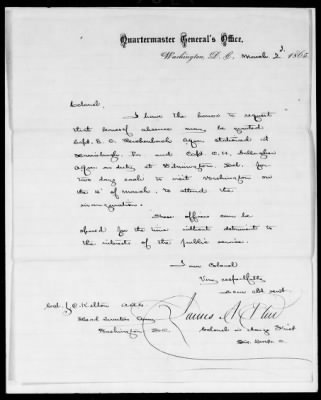 Quartermaster General's Office,
Washington, D. C., March 2d. 1865
Colonel,
I have the honor to request
that leaves of absence may be granted
Capt. E. C. Reichenbach AQM stationed at
Harrisburgh, Pa and Capt. C. H. Gallagher
AQM on duty at Wilmington, Del. for
two days each to visit Washington on
the 4" of March, to attend the
inauguration.
These officers can be
spared for the time without detriment to
the interests of the public service.
I am Colonel
Very respectfully
Your obt. servt.
Col. J. C. Kelton A.A.G.
Head Quarters Army
Washington D.C.
James A.
Colonel in charge First
Div.